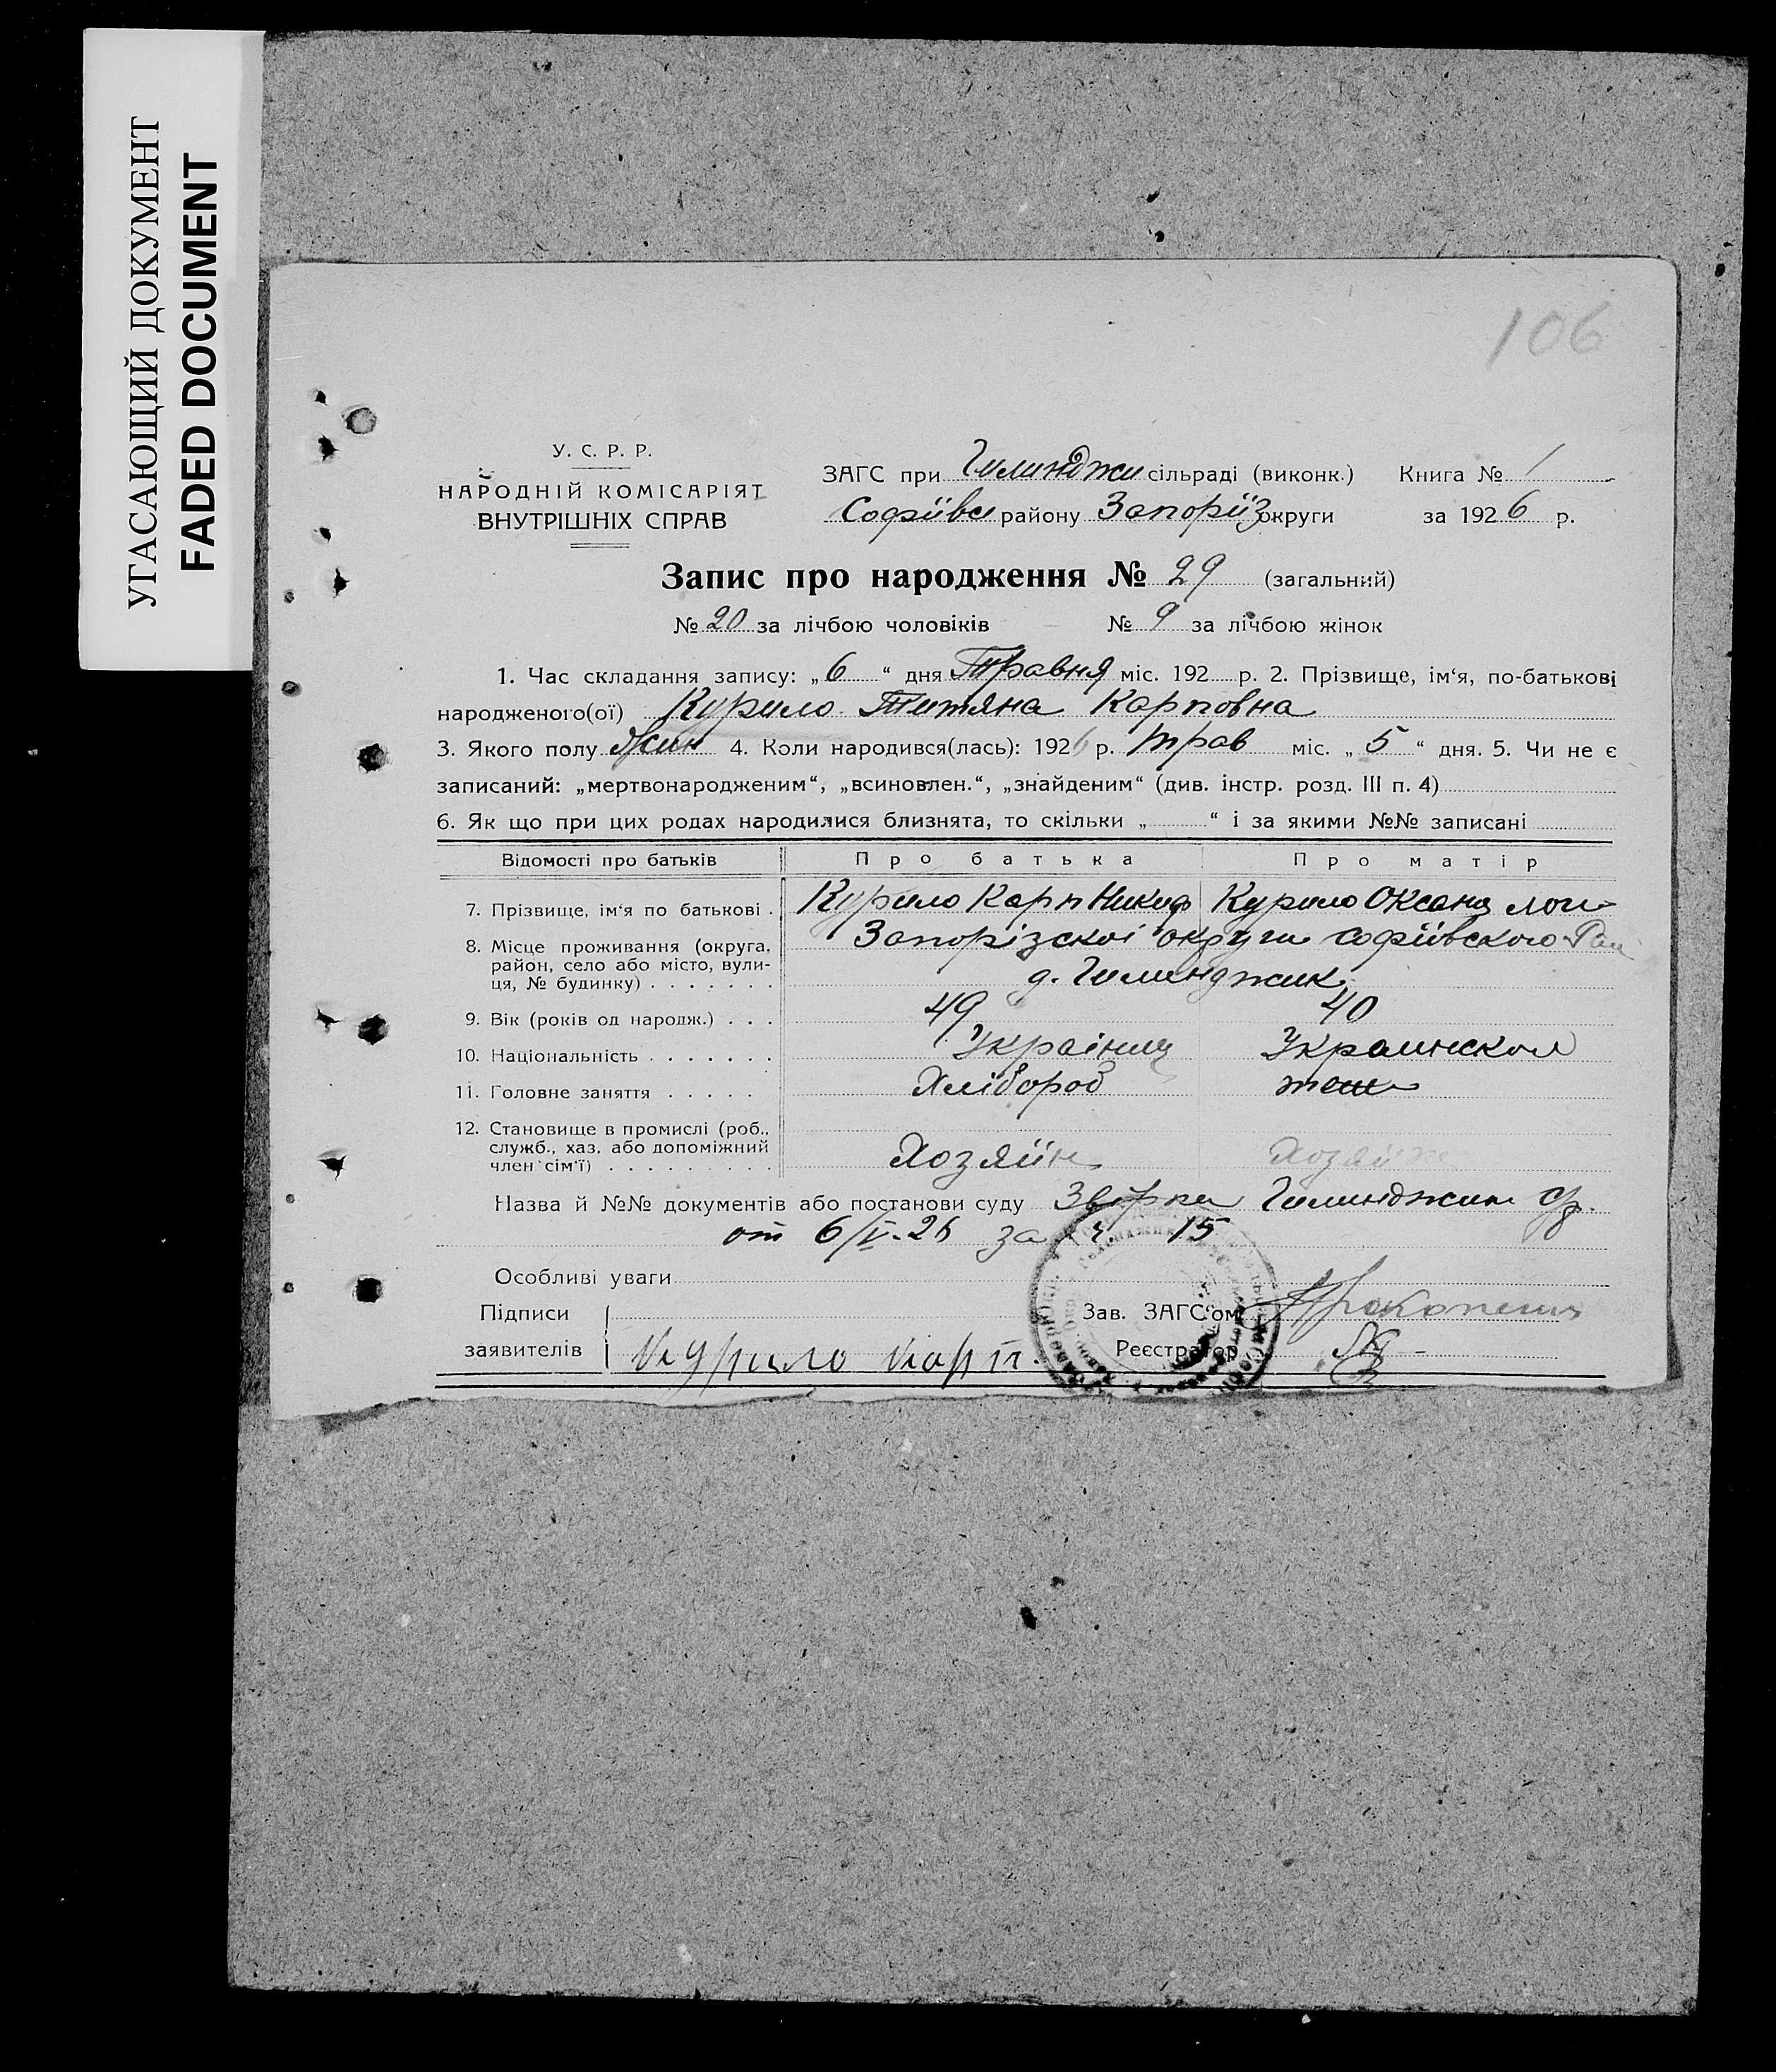 УГАСАЮЩИЙ ДОКУМЕНТ
FADED DOCUMENT
106
У. С. Р. Р.
НАРОДНІЙ КОМІСАРІЯТ
ВНУТРІШНІХ СПРАВ
ЗАГС при Гилинджи сільраді (виконк.) Книга № 1
Софіївс району Запоріз округи за 1926 р.
Запис про народження № 29 (загальний)
№ 20 за лічбою чоловіків № 9 за лічбою жінок
1. Час складання запису: „6“ дня Травня міс. 192 р. 2. Прізвище, ім‘я, по-батькові
народженого(ої) Курило Титяна Карповна
3. Якого полу жин 4. Коли народився(лась): 1926 р. трав міс. „5“ дня. 5. Чи не є
записаний: „мертвонародженим“, „всиновлен.“, „знайденим“ (див. інстр. розд. III п. 4)
6. Як що при цих родах народилися близнята, то скільки „ “ і за якими №№ записані
Відомості про батьків Про батька Про матір
7. Прізвище, ім‘я по батькові . Курило Карп Никиф Курило Оксана
8. Місце проживання (округа, район, село або місто, вулиця, № будинку) . . . . . . . Запорізскоі округи Софіївского
д. Гилинджик
9. Вік (років од народж.) . . . 49 40
10. Національність . . . . . . . Украінец Украинскои
11. Головне заняття . . . . . Хлібороб
12. Становище в промислі (роб.,
служб., хаз. або допоміжний
член сім‘ї) . . . . . . . . . Хозяїін Хозяйк
Назва й №№ документів або постанови суду Гилинджик
от 6/V-26 за ч. 15
Особливі уваги
Підписи Зав. ЗАГС‘ом
заявителів Курило Карп. Реєстратор